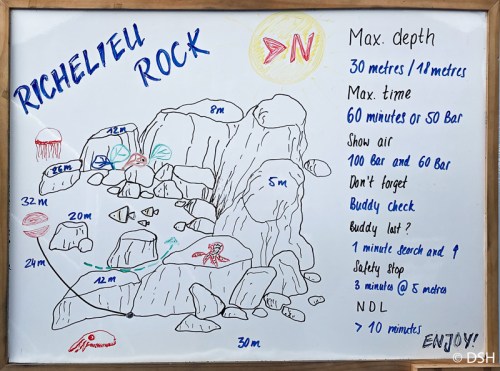 RICHELIEU
ROCK
N
8m
12m
26m
5m
32m
20m
24m
12m
30m
Max. depth
30 metres / 18 metres
Max. time
60 minutes or 50 Bar
Show air
100 Bar and 60 Bar
Don't forget
Buddy check
Buddy lost?
1 minute search and ↑
Safety stop
3 minutes @ 5 metres
NDL
> 10 minutes
ENJOY!
© DSH